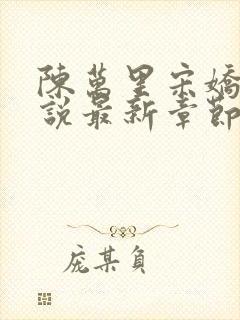 陳萬里宋嬌
說最新章節
庞某負